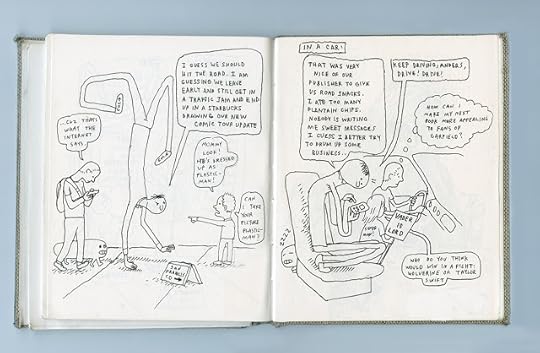 I GUESS WE SHOULD
HIT THE ROAD. I AM
GUESSING WE LEAVE
EARLY AND STILL GET IN
A TRAFFIC JAM AND END
UP IN A STARBUCKS
DRAWING OUR NEW
COMIC TOUR UPDATE
...CUZ THAT'S
WHAT THE
INTERNET
SAYS
MOMMY
LOOK!
HE'S DRESSED
UP AS
PLASTIC-
MAN!
CAN I
TAKE
YOUR
PICTURE
PLASTIC-
MAN?
SAN
FRANCIS
CO
IN A CAR!
THAT WAS VERY
NICE OF OUR
PUBLISHER TO GIVE
US ROAD SNACKS.
I ATE TOO MANY
PLANTAIN CHIPS.
NOBODY IS WRITING
ME SWEET MESSAGES
I GUESS I BETTER TRY
TO DRUM UP SOME
BUSINESS...
KEEP DRIVING, ANDERS,
DRIVE! DRIVE!
HOW CAN I
MAKE MY NEXT
BOOK MORE APPEALING
TO FANS OF
GARFIELD?
VADER IS
LORD
WHO DO YOU THINK
WOULD WIN IN A FIGHT:
WOLVERINE OR TAYLOR
SWIFT